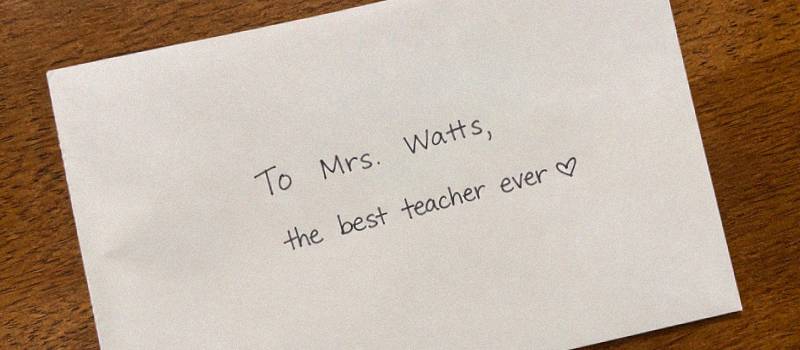 To Mrs. Watts,
the best teacher ever ♡